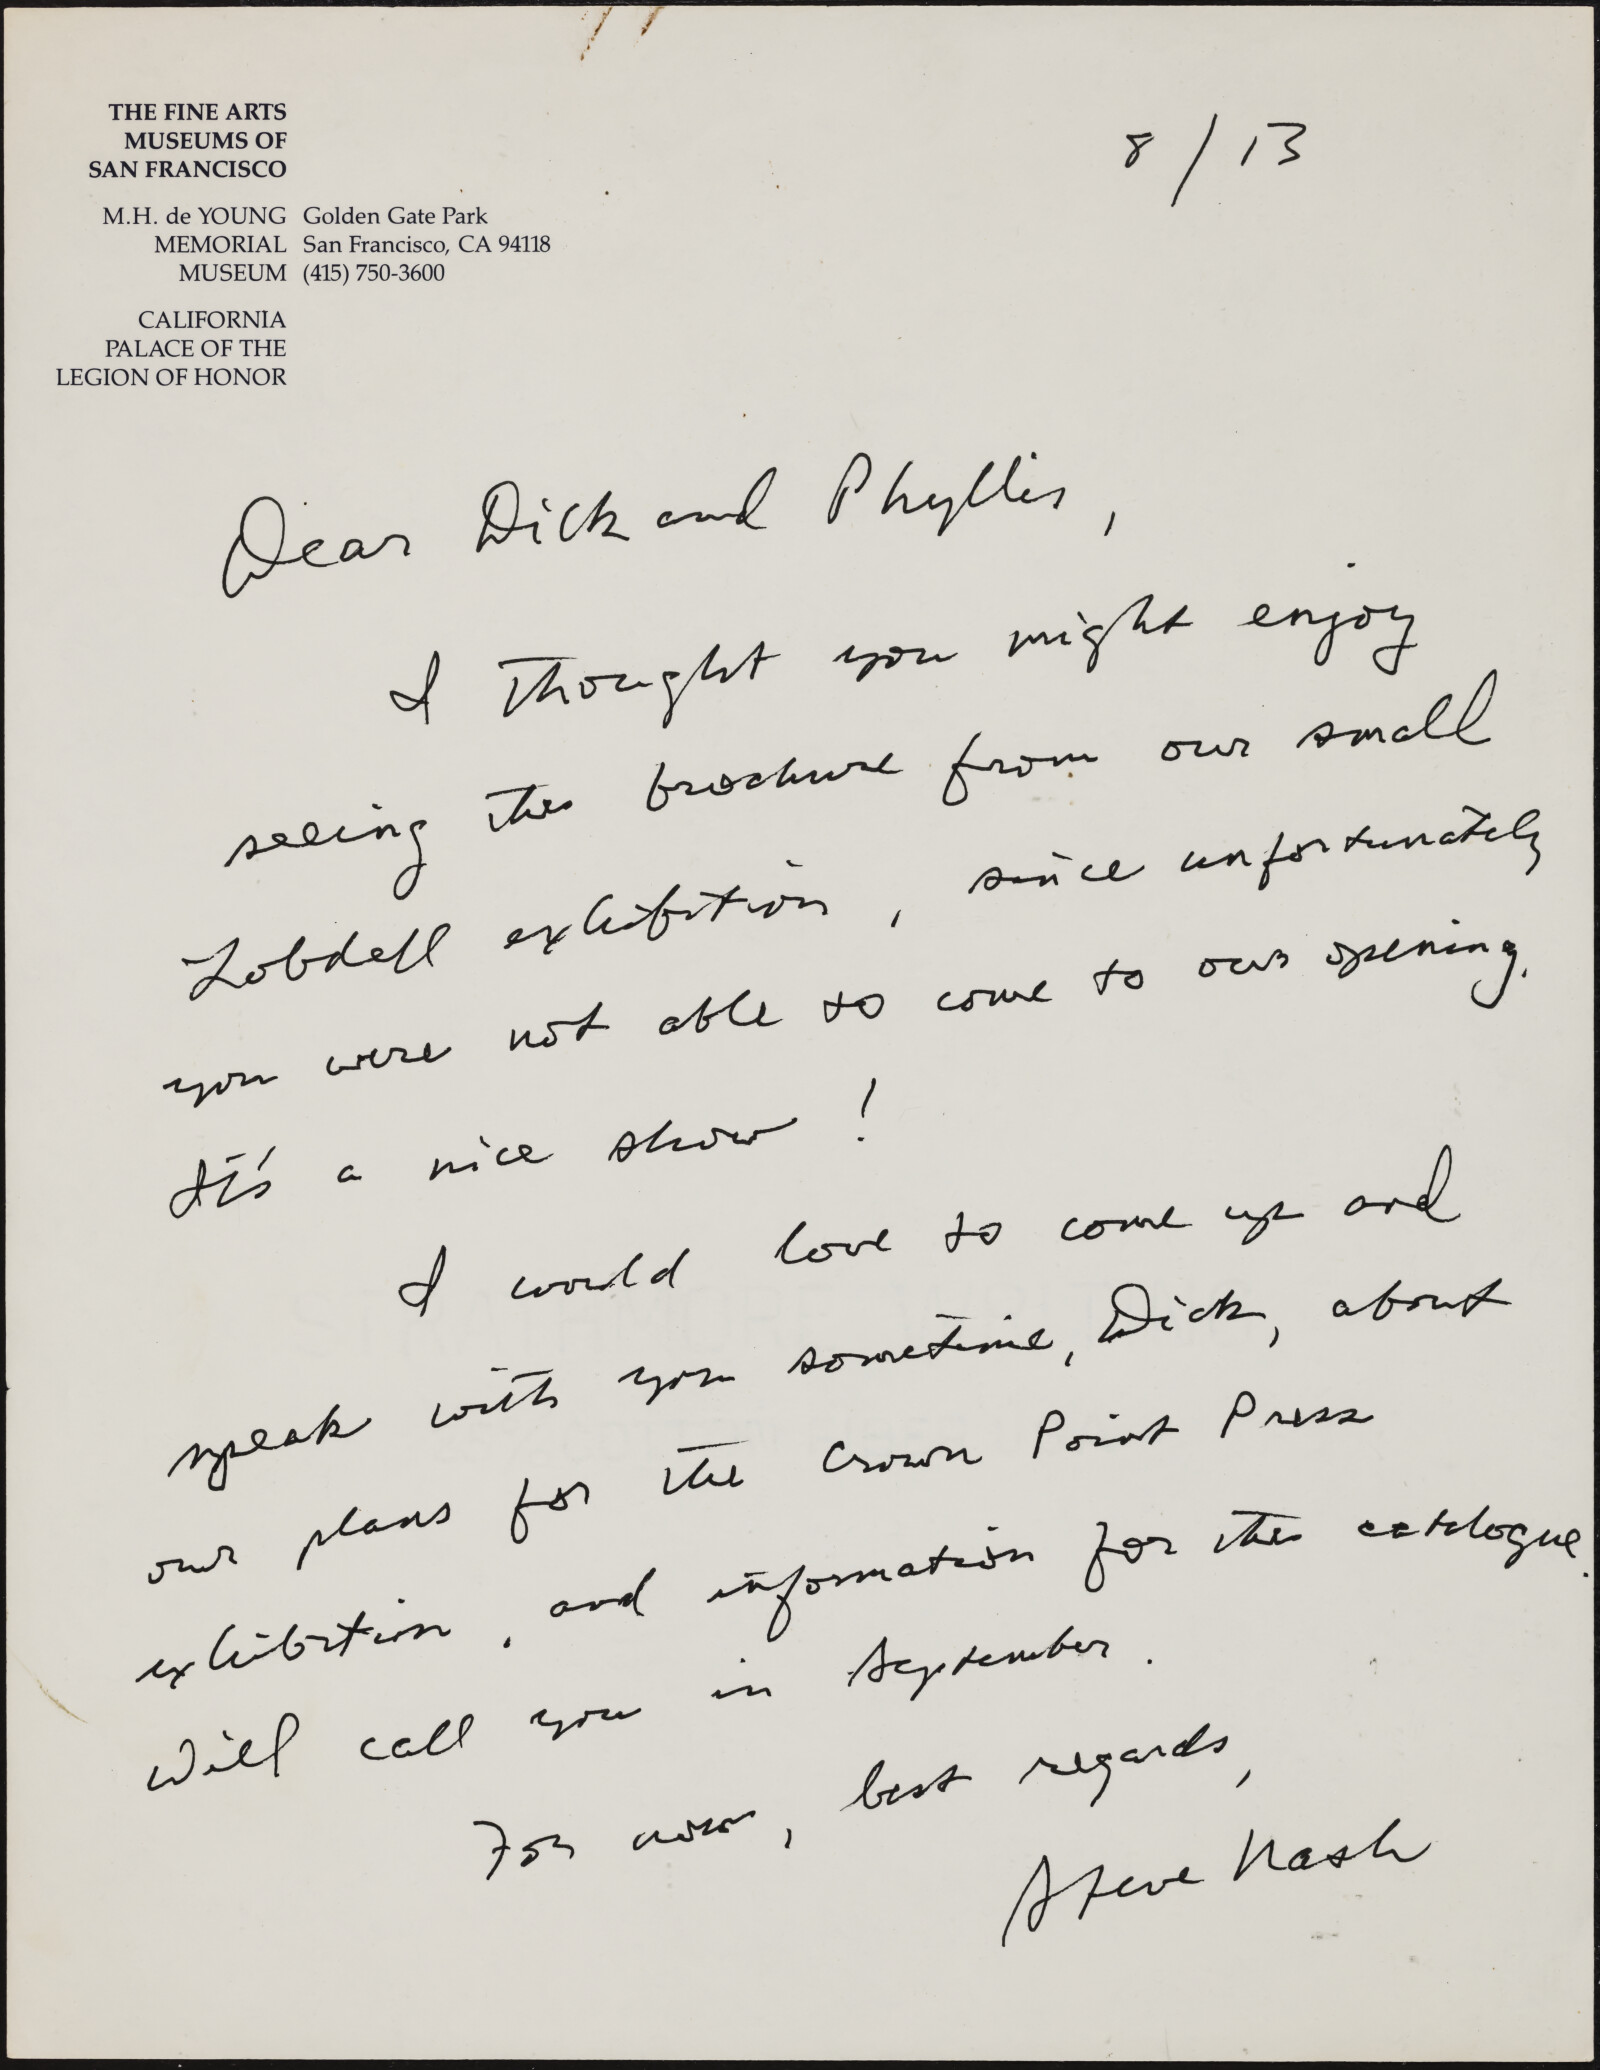 THE FINE ARTS
MUSEUMS OF
SAN FRANCISCO
M.H. de YOUNG Golden Gate Park
MEMORIAL San Francisco, CA 94118
MUSEUM (415) 750-3600
CALIFORNIA
PALACE OF THE
LEGION OF HONOR
8/13
Dear Dick and Phyllis,
I thought you might enjoy
seeing the brochure from our small
Lobdell exhibition, since unfortunately
you were not able to come to our opening.
It's a nice show!
I would love to come up and
speak with you sometime, Dick, about
our plans for the Crown Point Press
exhibition, and information for the catalogue.
Will call you in September.
For now, best regards,
Steve Nash